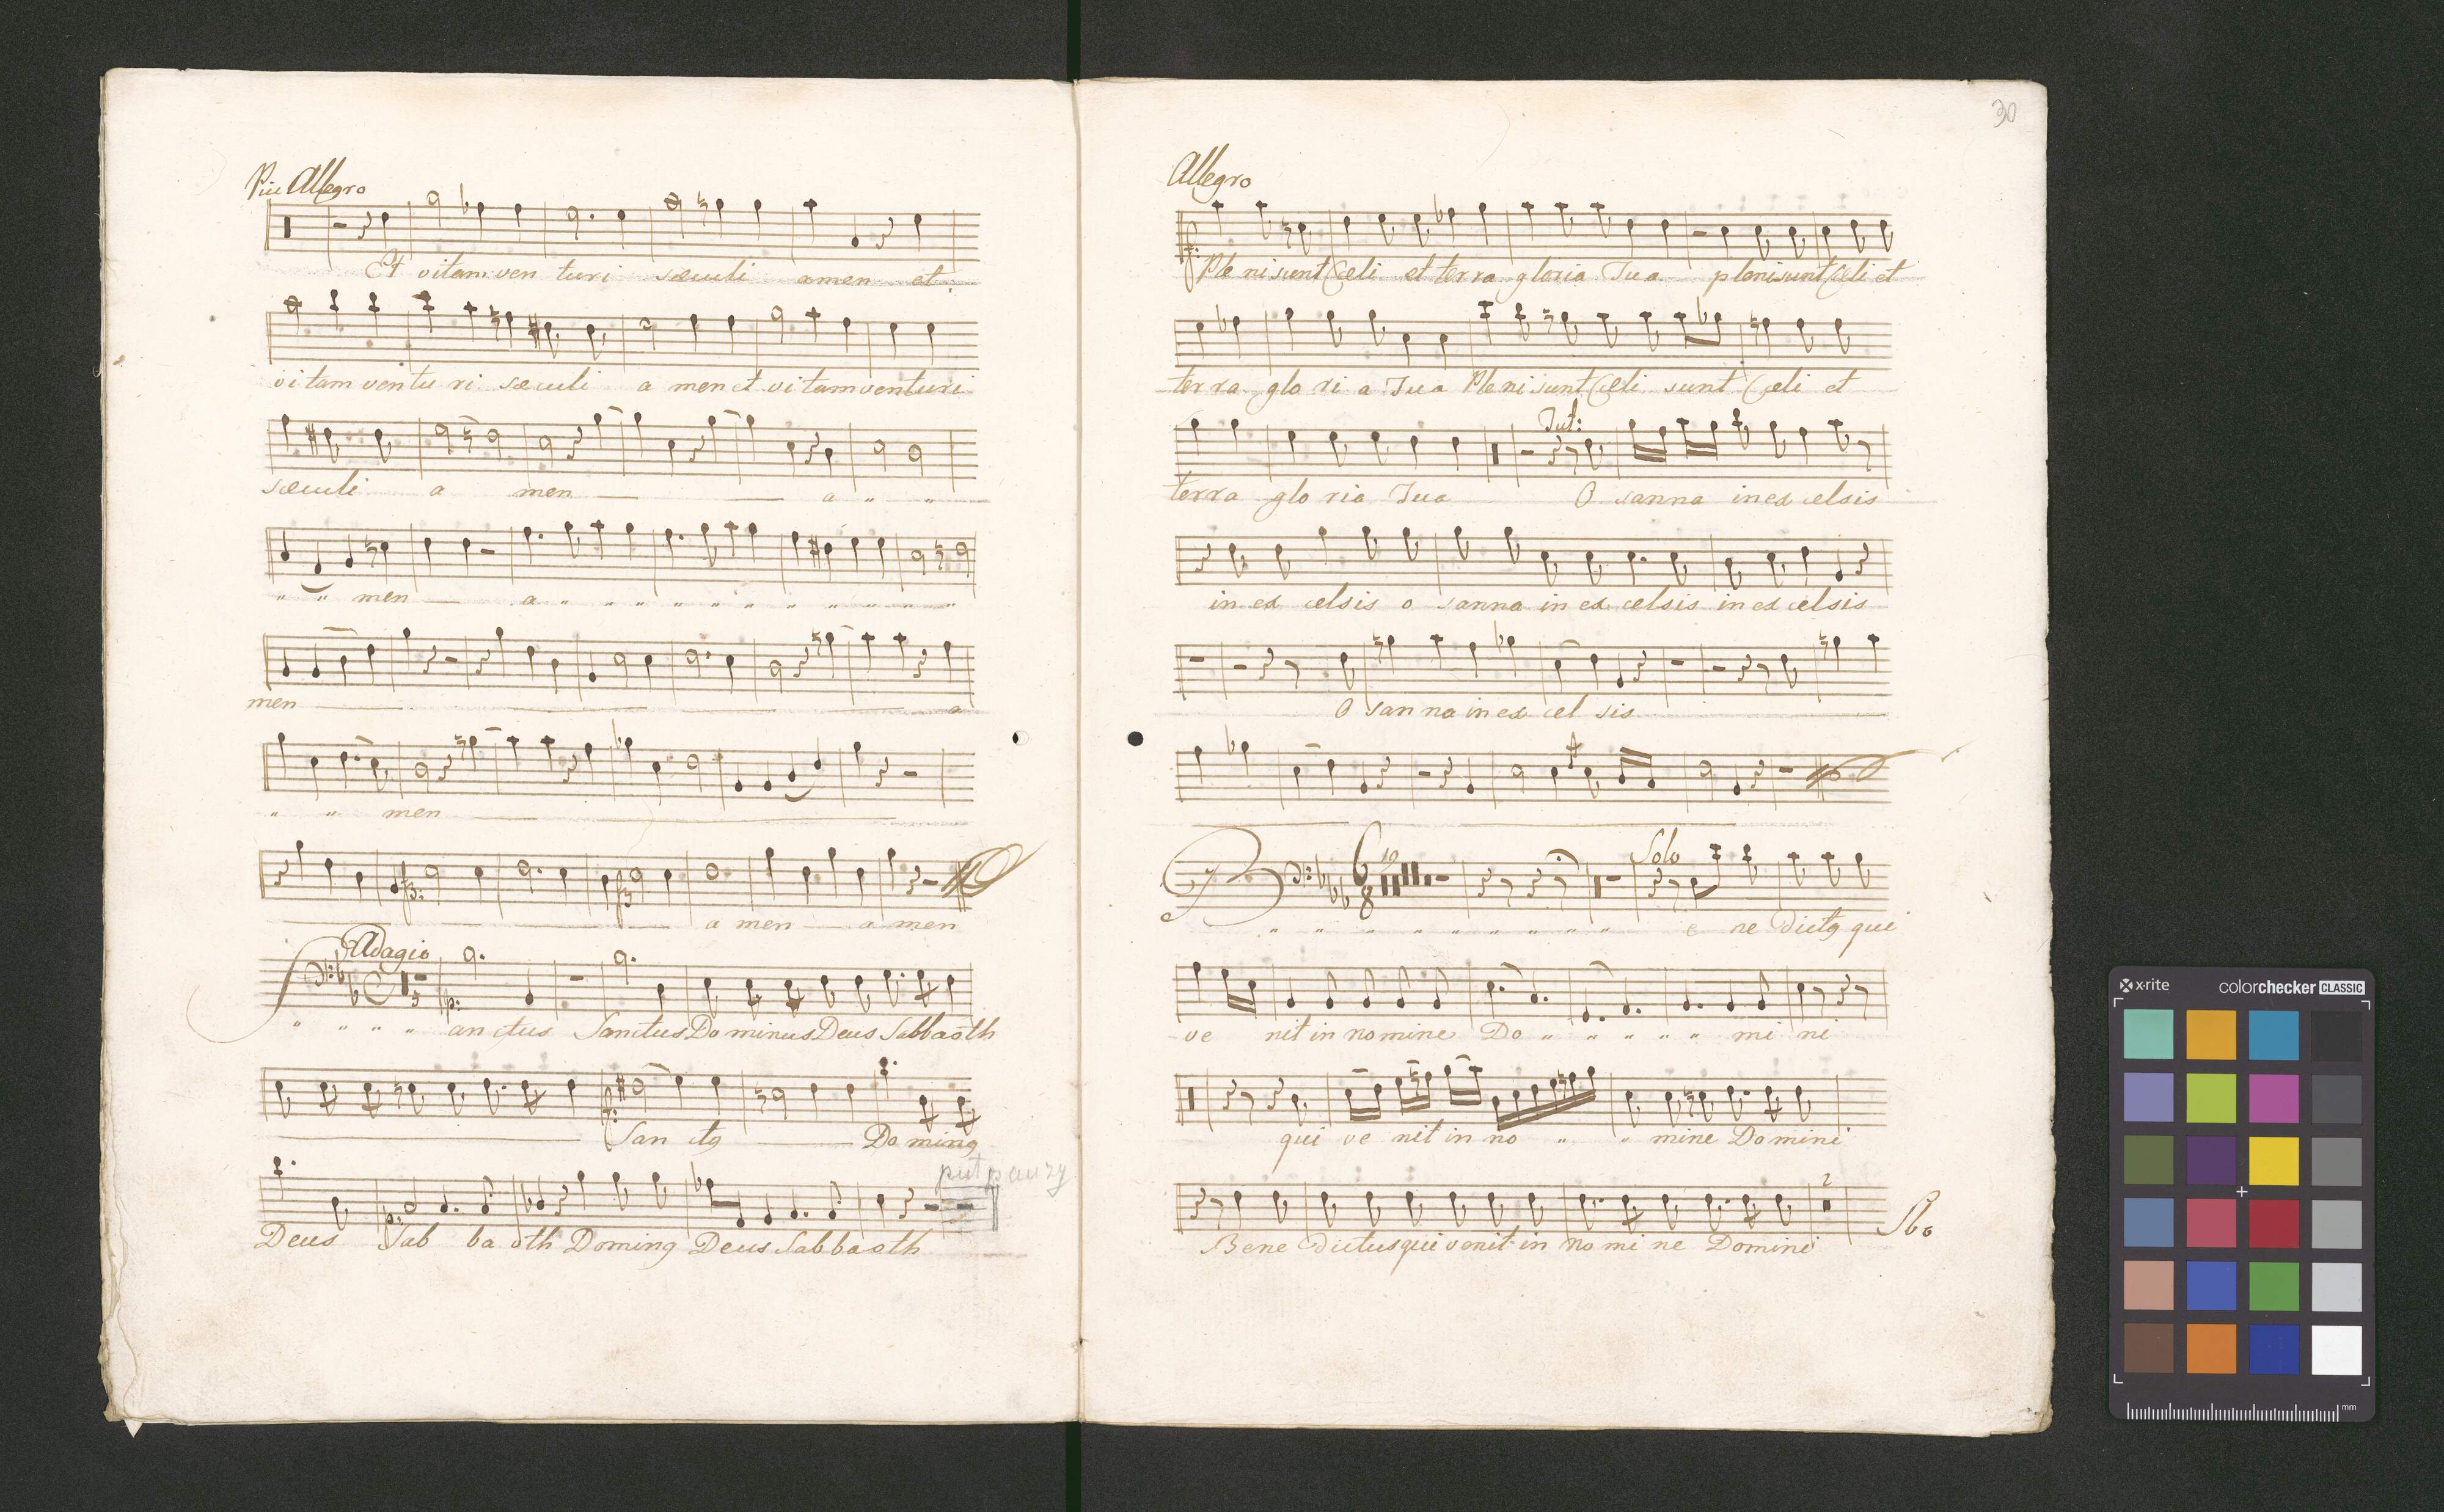 Piu Allegro
Et vitam ven turi sæculi amen et
vitam ventu ri sæculi a men et vitam venturi
sæculi a men a " "
" " men a " " " " " " " " " " "
men a
" " men
a men a men
Adagio
" " " " anctus Sanctus Dominus Deus Sabbaoth
San ctq Do minq
put pauzy
Deus Sab ba oth Dominq Deus Sabbaoth
30
Allegro
Ple ni sunt Cæli et terra gloria Tua pleni sunt Cæli et
terra glo ri a Tua Pleni sunt Cæli sunt Cæli et
Tut:
terra glo ria Tua O sanna in ex celsis
in ex celsis o sanna in ex celsis in ex celsis
O san na in ex cel sis
B 6 8 19 Solo
" " " " " " " " " e ne dictq qui
ve nit in nomine Do " " " " " mi ni
qui ve nit in no " " mine Domini
2
Bene dictus qui venit in no mi ne Domini
x-rite colorchecker CLASSIC
mm